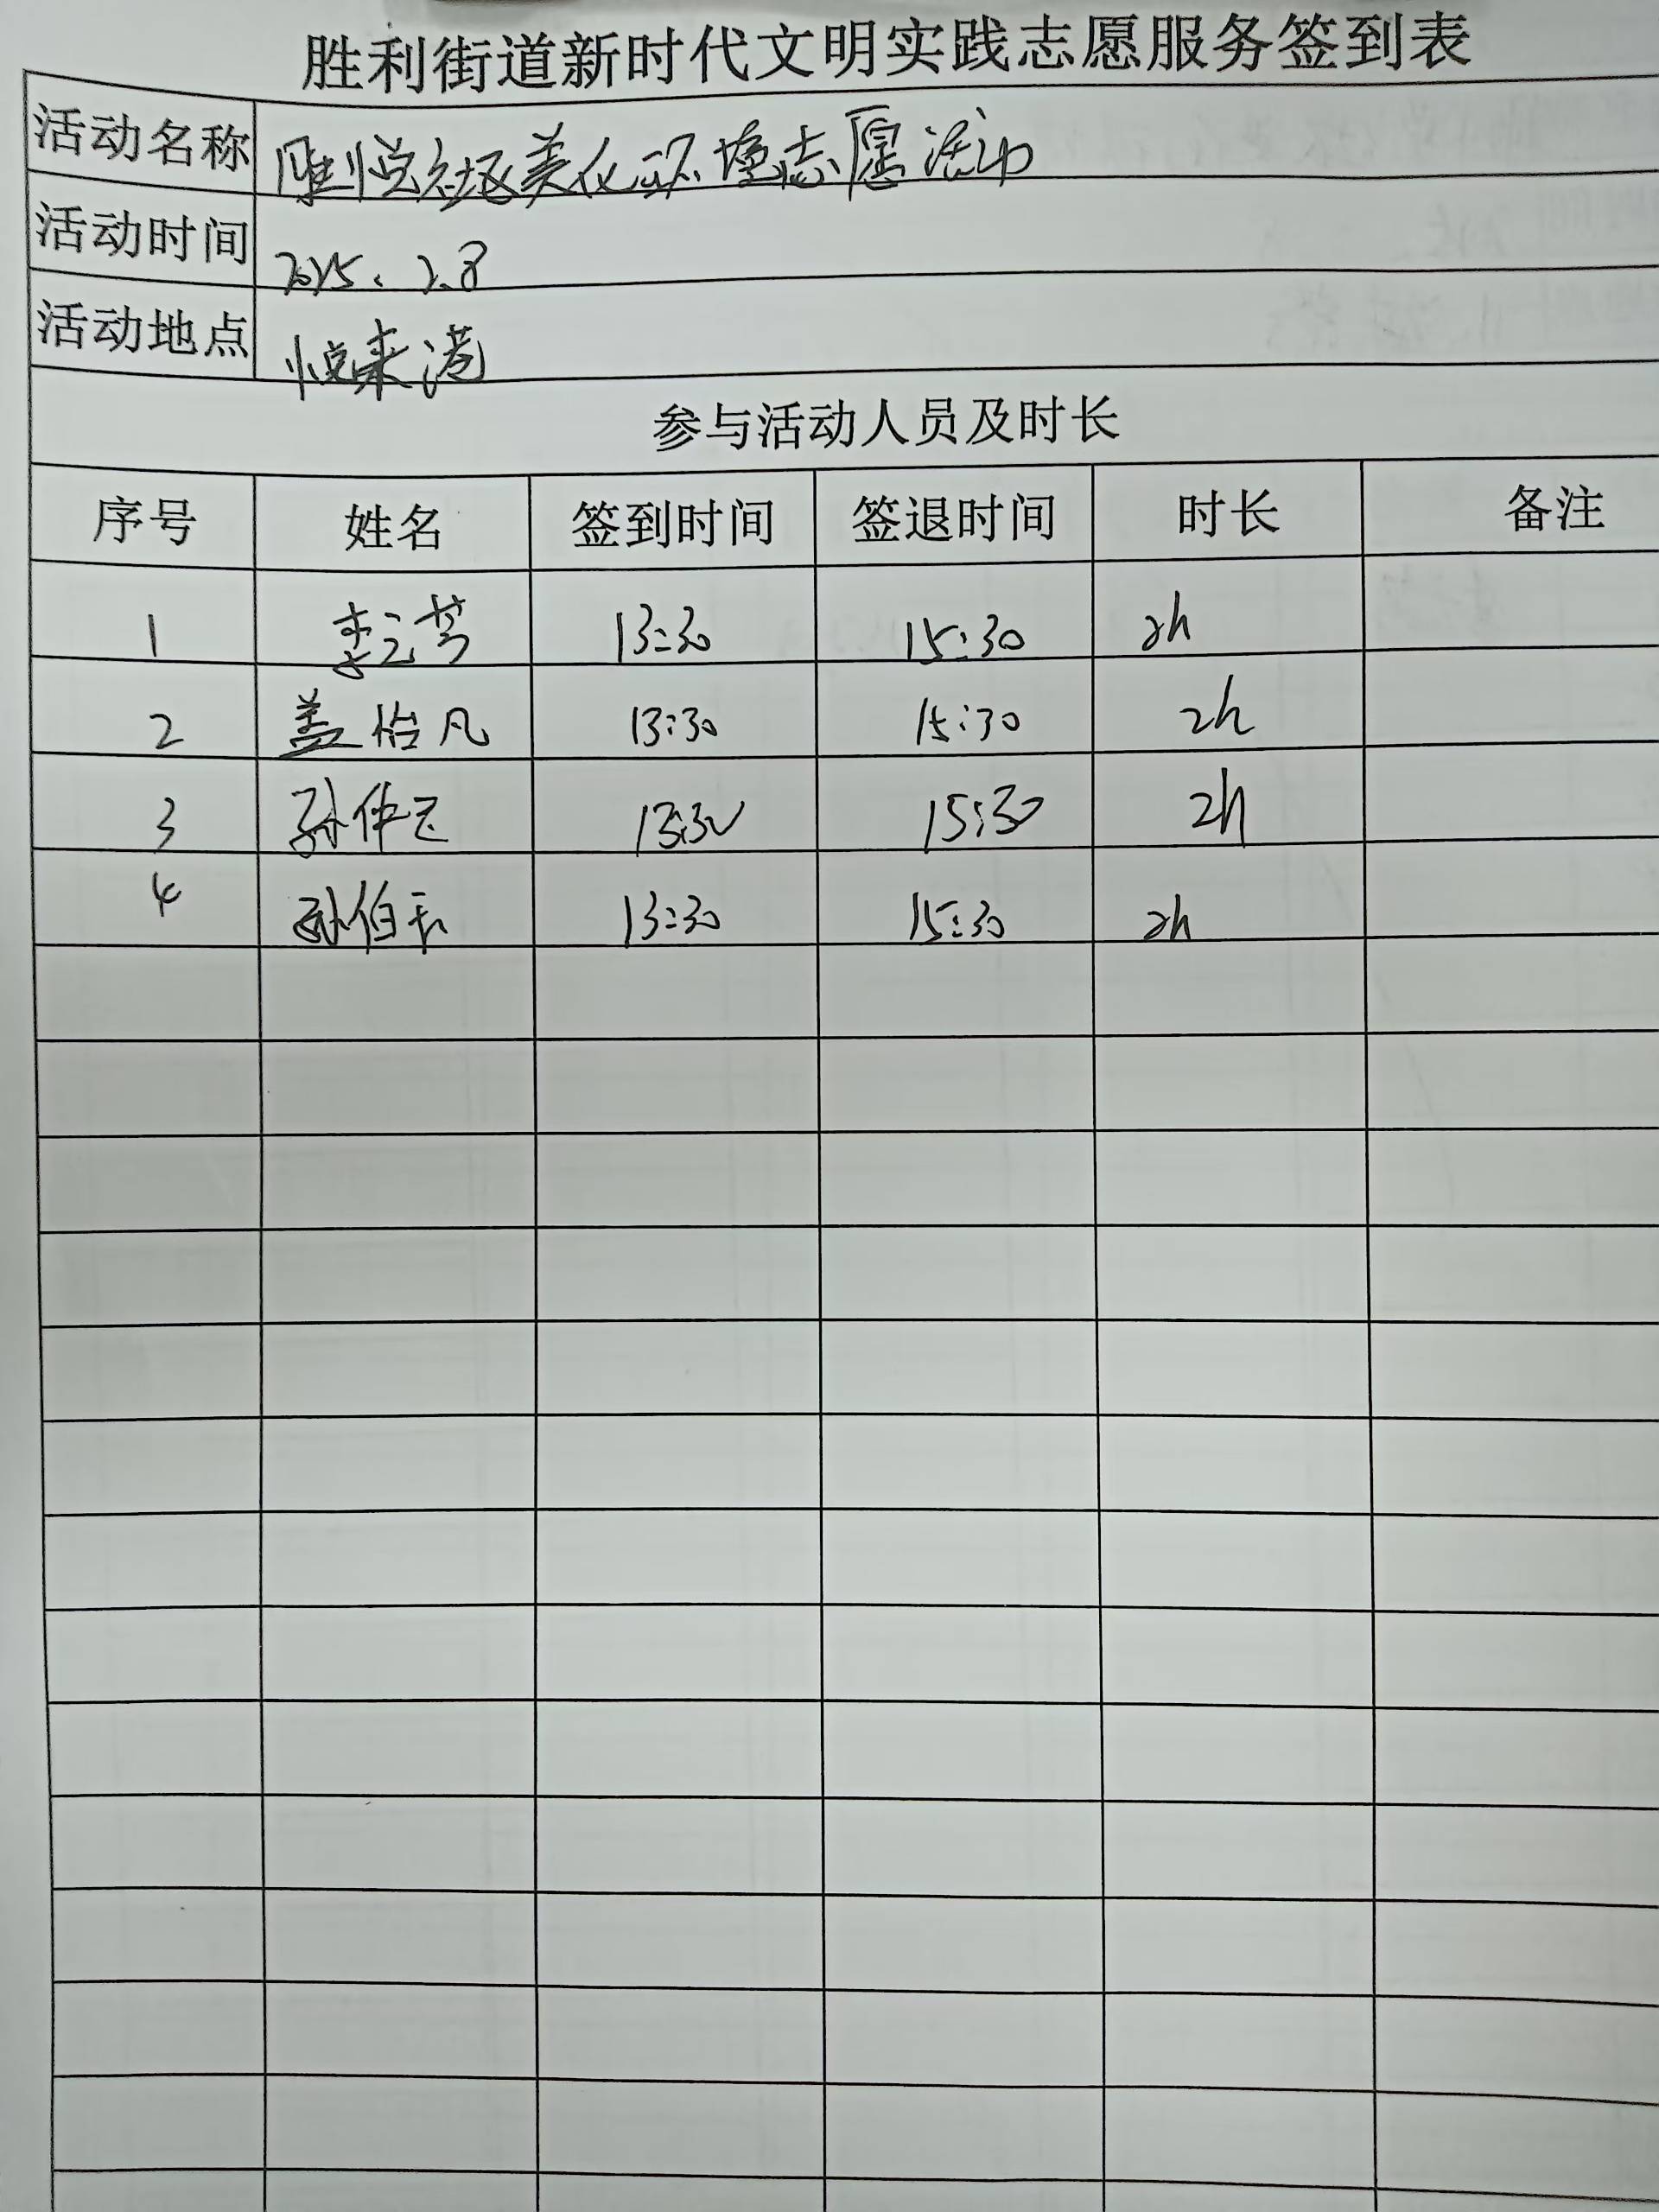 胜利街道新时代文明实践志愿服务签到表
活动名称 胜悦社区美化环境志愿活动
活动时间 2025.2.8
活动地点 悦来港
参与活动人员及时长
序号 姓名 签到时间 签退时间 时长 备注
1 李云芳 13:30 15:30 2h
2 盖怡凡 13:30 15:30 2h
3 孙 13:30 15:30 2h
4 孙伯 13:30 15:30 2h